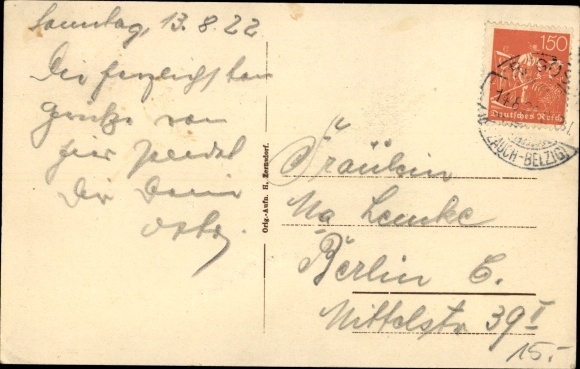 Sonntag, 13.8.22
Die herzlichsten
Grüße von
hier sendet
Dir Deine
Orig.-Aufn. H. Zernsdorf.
Fräulein
Ma Lemke
Berlin C.
Mittelstr 39 I
15.-
150
Deutsches Reich
(ZAUCH-BELZIG)